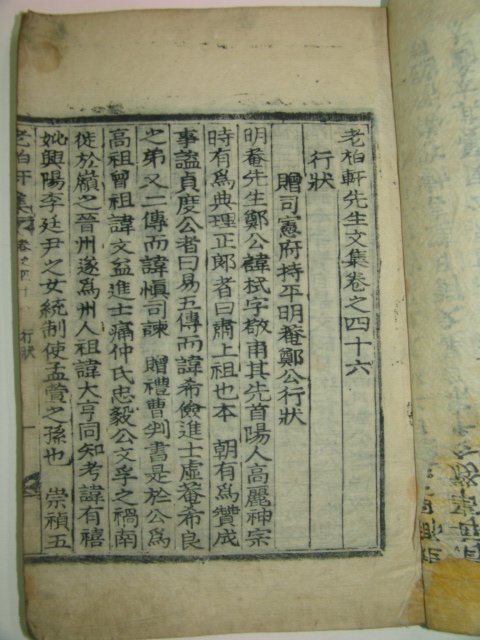 老柏軒先生文集卷之四十六
行狀
贈司憲府持平明菴鄭公行狀
明菴先生鄭公諱栻字敬甫其先首陽人高麗神宗
時有為典理正郎者曰肅上祖也本 朝有為贊成
事謚貞度公者曰易五傳而諱希儉進士虛菴希良
之弟又二傳而諱愼司諫 贈禮曹判書是於公為
高祖曾祖諱文益進士痛仲氏忠毅公文孚之禍南
徙於嶺之晉州遂為州人祖諱大亨同知考諱有禧
妣興陽李廷尹之女統制使孟賞之孫也 崇禎五
老柏軒集 卷之四十 行狀